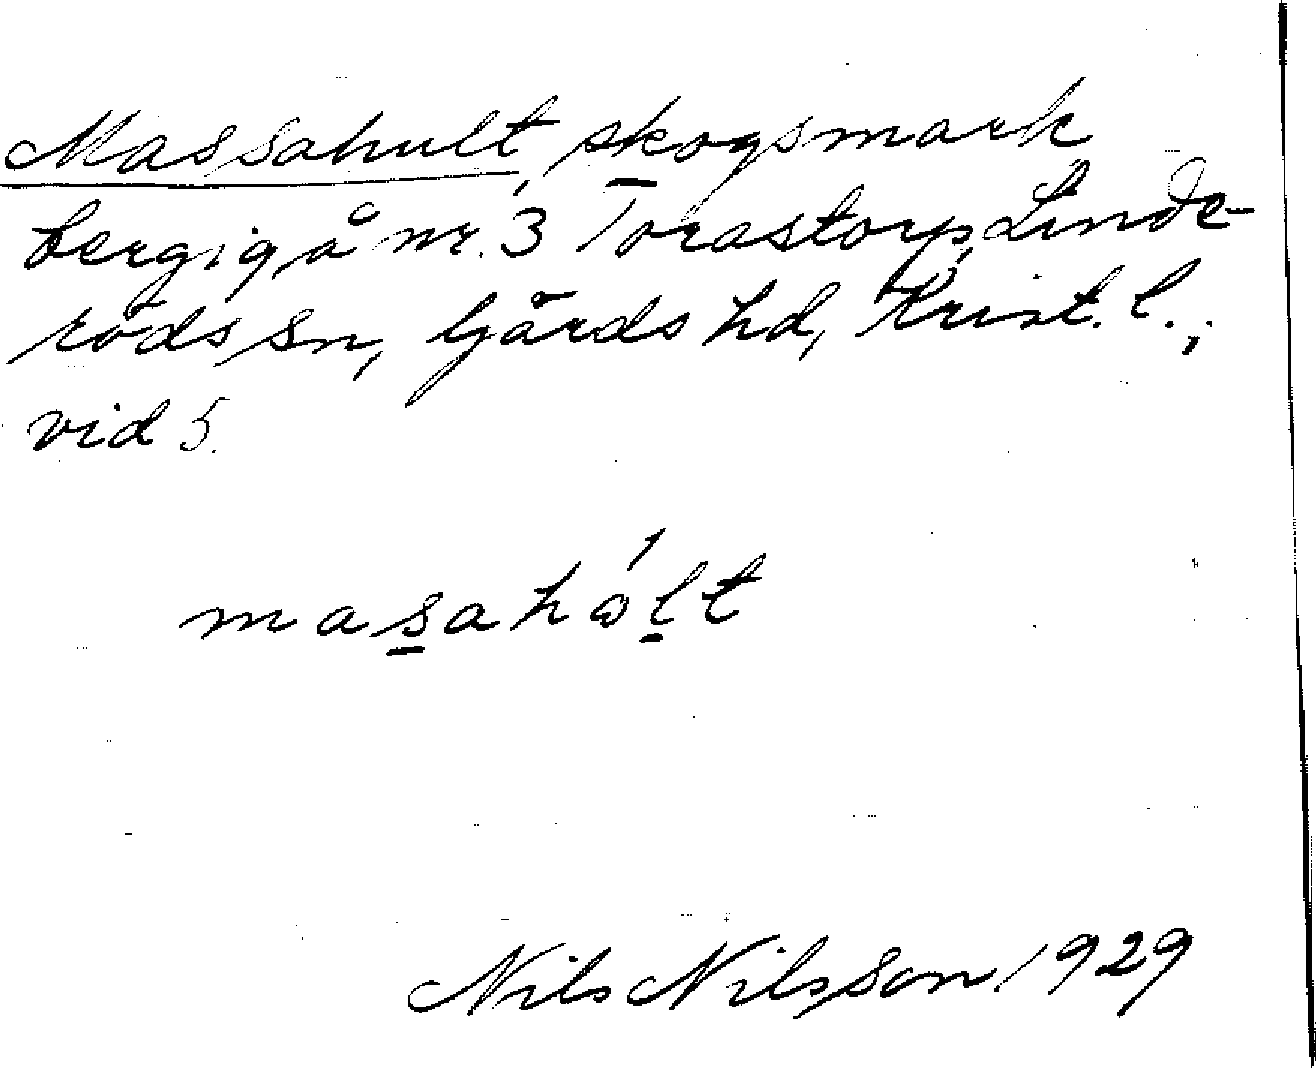 Massahult, skogsmark
bergig å nr. 3 Torastorp, Linde-
röds sn, Gärds hd, Krist. l.;
vid 5.
masahólt
Nils Nilsson 1929